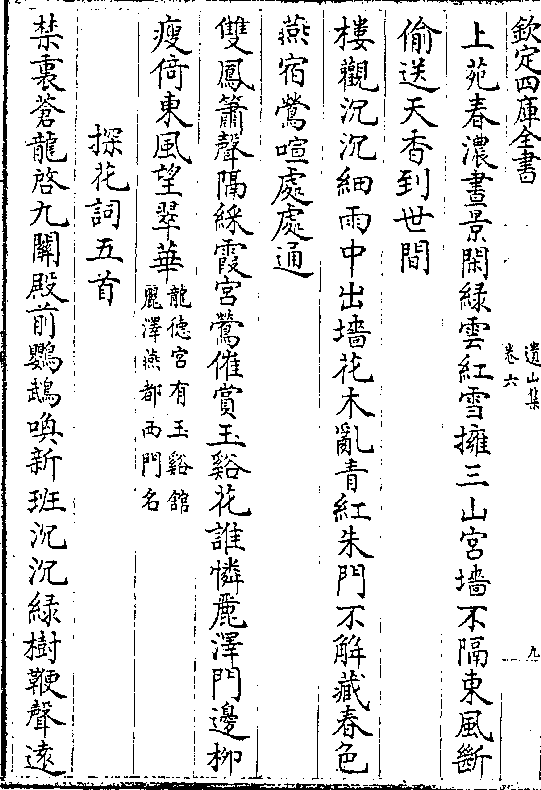 欽定四庫全書
遺山集
卷六
九
上苑春濃晝景閑緑雲紅雪擁三山宮墻不隔東風斷
偷送天香到世間
樓觀沉沉細雨中出墻花木亂青紅朱門不解藏春色
燕宿鶯喧處處通
雙鳳簫聲隔綵霞宮鶯催賞玉谿花誰憐麗澤門邊柳
瘦倚東風望翠華
龍徳宮有玉谿舘
麗澤燕都西門名
探花詞五首
禁裏蒼龍啓九關殿前鸚鵡喚新班沉沉緑樹鞭聲遠